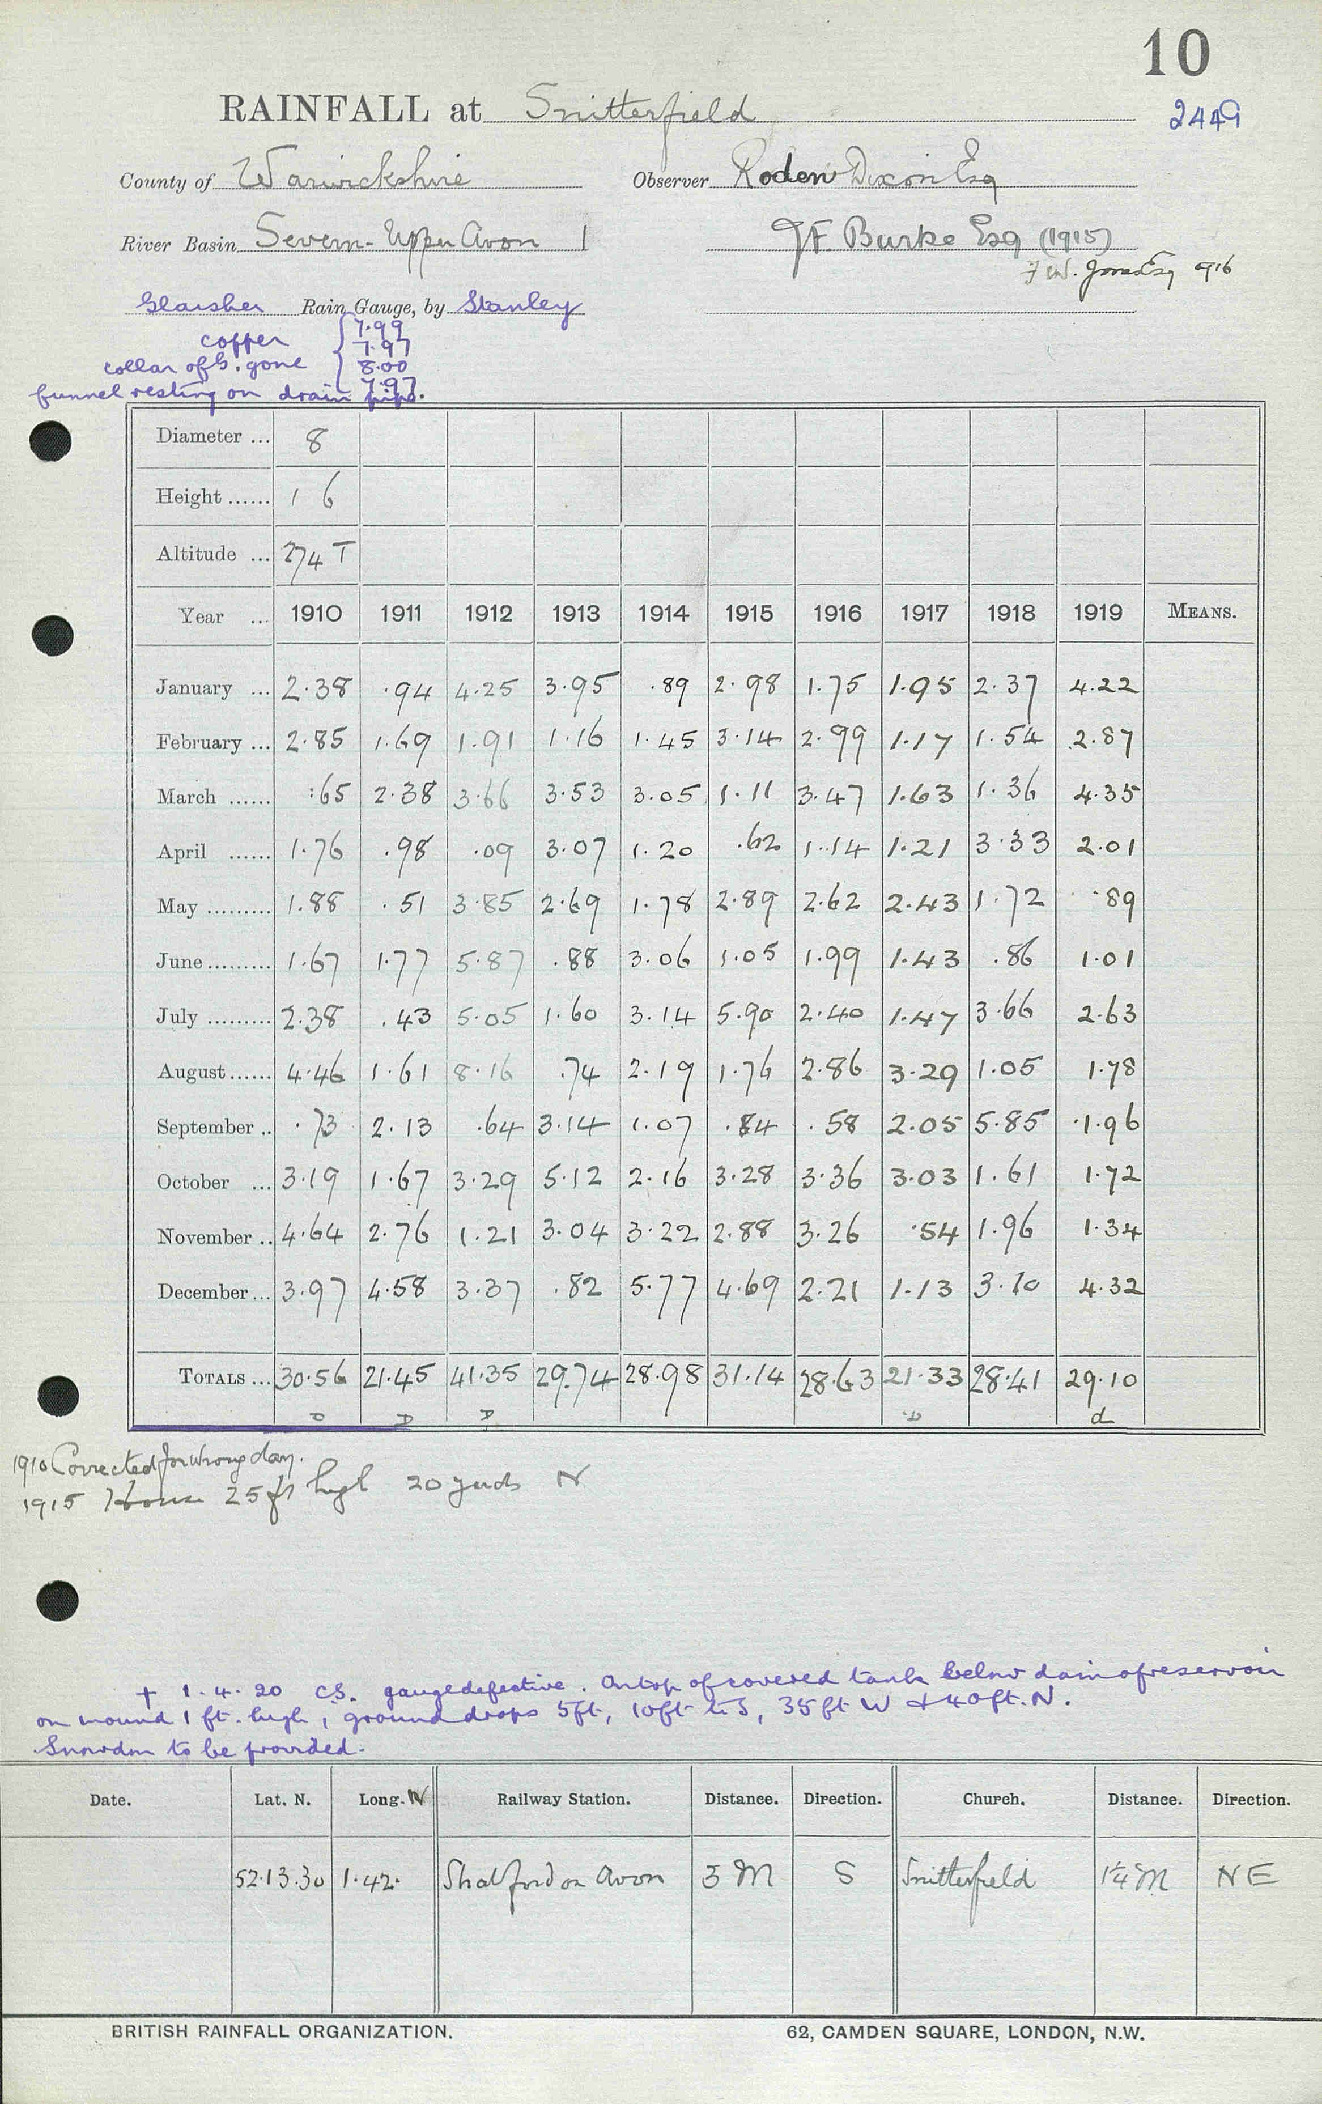 10
RAINFALL at Snitterfield
2449
County of Warwickshire Observer Roden Dixon Esq
River Basin Severn - Upper Avon 1 J F. Burke Esq (1915)
F W. Jones Esq 1916
Glaisher Rain Gauge, by Stanley
copper 7.99
7.97
collar of G. gone 8.00
7.97
funnel resting on drain pipe.
Diameter ... 8
Height ...... 1 6
Altitude ... 274 T
Year ... 1910 1911 1912 1913 1914 1915 1916 1917 1918 1919 MEANS.
January ... 2.38 .94 4.25 3.95 .89 2.98 1.75 1.95 2.37 4.22
February ... 2.85 1.69 1.91 1.16 1.45 3.14 2.99 1.17 1.54 2.87
March ...... .65 2.38 3.66 3.53 3.05 1.11 3.47 1.63 1.36 4.35
April ...... 1.76 .98 .09 3.07 1.20 .62 1.14 1.21 3.33 2.01
May ......... 1.88 .51 3.85 2.69 1.78 2.89 2.62 2.43 1.72 .89
June ......... 1.67 1.77 5.87 .88 3.06 1.05 1.99 1.43 .86 1.01
July ......... 2.38 .43 5.05 1.60 3.14 5.90 2.40 1.47 3.66 2.63
August ...... 4.46 1.61 8.16 .74 2.19 1.76 2.86 3.29 1.05 1.78
September .. .73 2.13 .64 3.14 1.07 .84 .58 2.05 5.85 1.96
October ... 3.19 1.67 3.29 5.12 2.16 3.28 3.36 3.03 1.61 1.72
November .. 4.64 2.76 1.21 3.04 3.22 2.88 3.26 .54 1.96 1.34
December ... 3.97 4.58 3.37 .82 5.77 4.69 2.21 1.13 3.10 4.32
TOTALS ... 30.56 21.45 41.35 29.74 28.98 31.14 28.63 21.33 28.41 29.10
D D D D d
1910 Corrected for wrong day.
1915 House 25 ft high 20 yards N
+ 1.4.20 CS. gauge defective. On top of covered tank below dam of reservoir
on mound 1 ft. high, ground drops 5ft, 10ft to S, 35ft W & 40ft. N.
Snowdon to be provided.
Date. Lat. N. Long. W Railway Station. Distance. Direction. Church. Distance. Direction.
52.13.30 1.42. Stratford on Avon 3 M S Snitterfield 1¼ M NE
BRITISH RAINFALL ORGANIZATION. 62, CAMDEN SQUARE, LONDON, N.W.